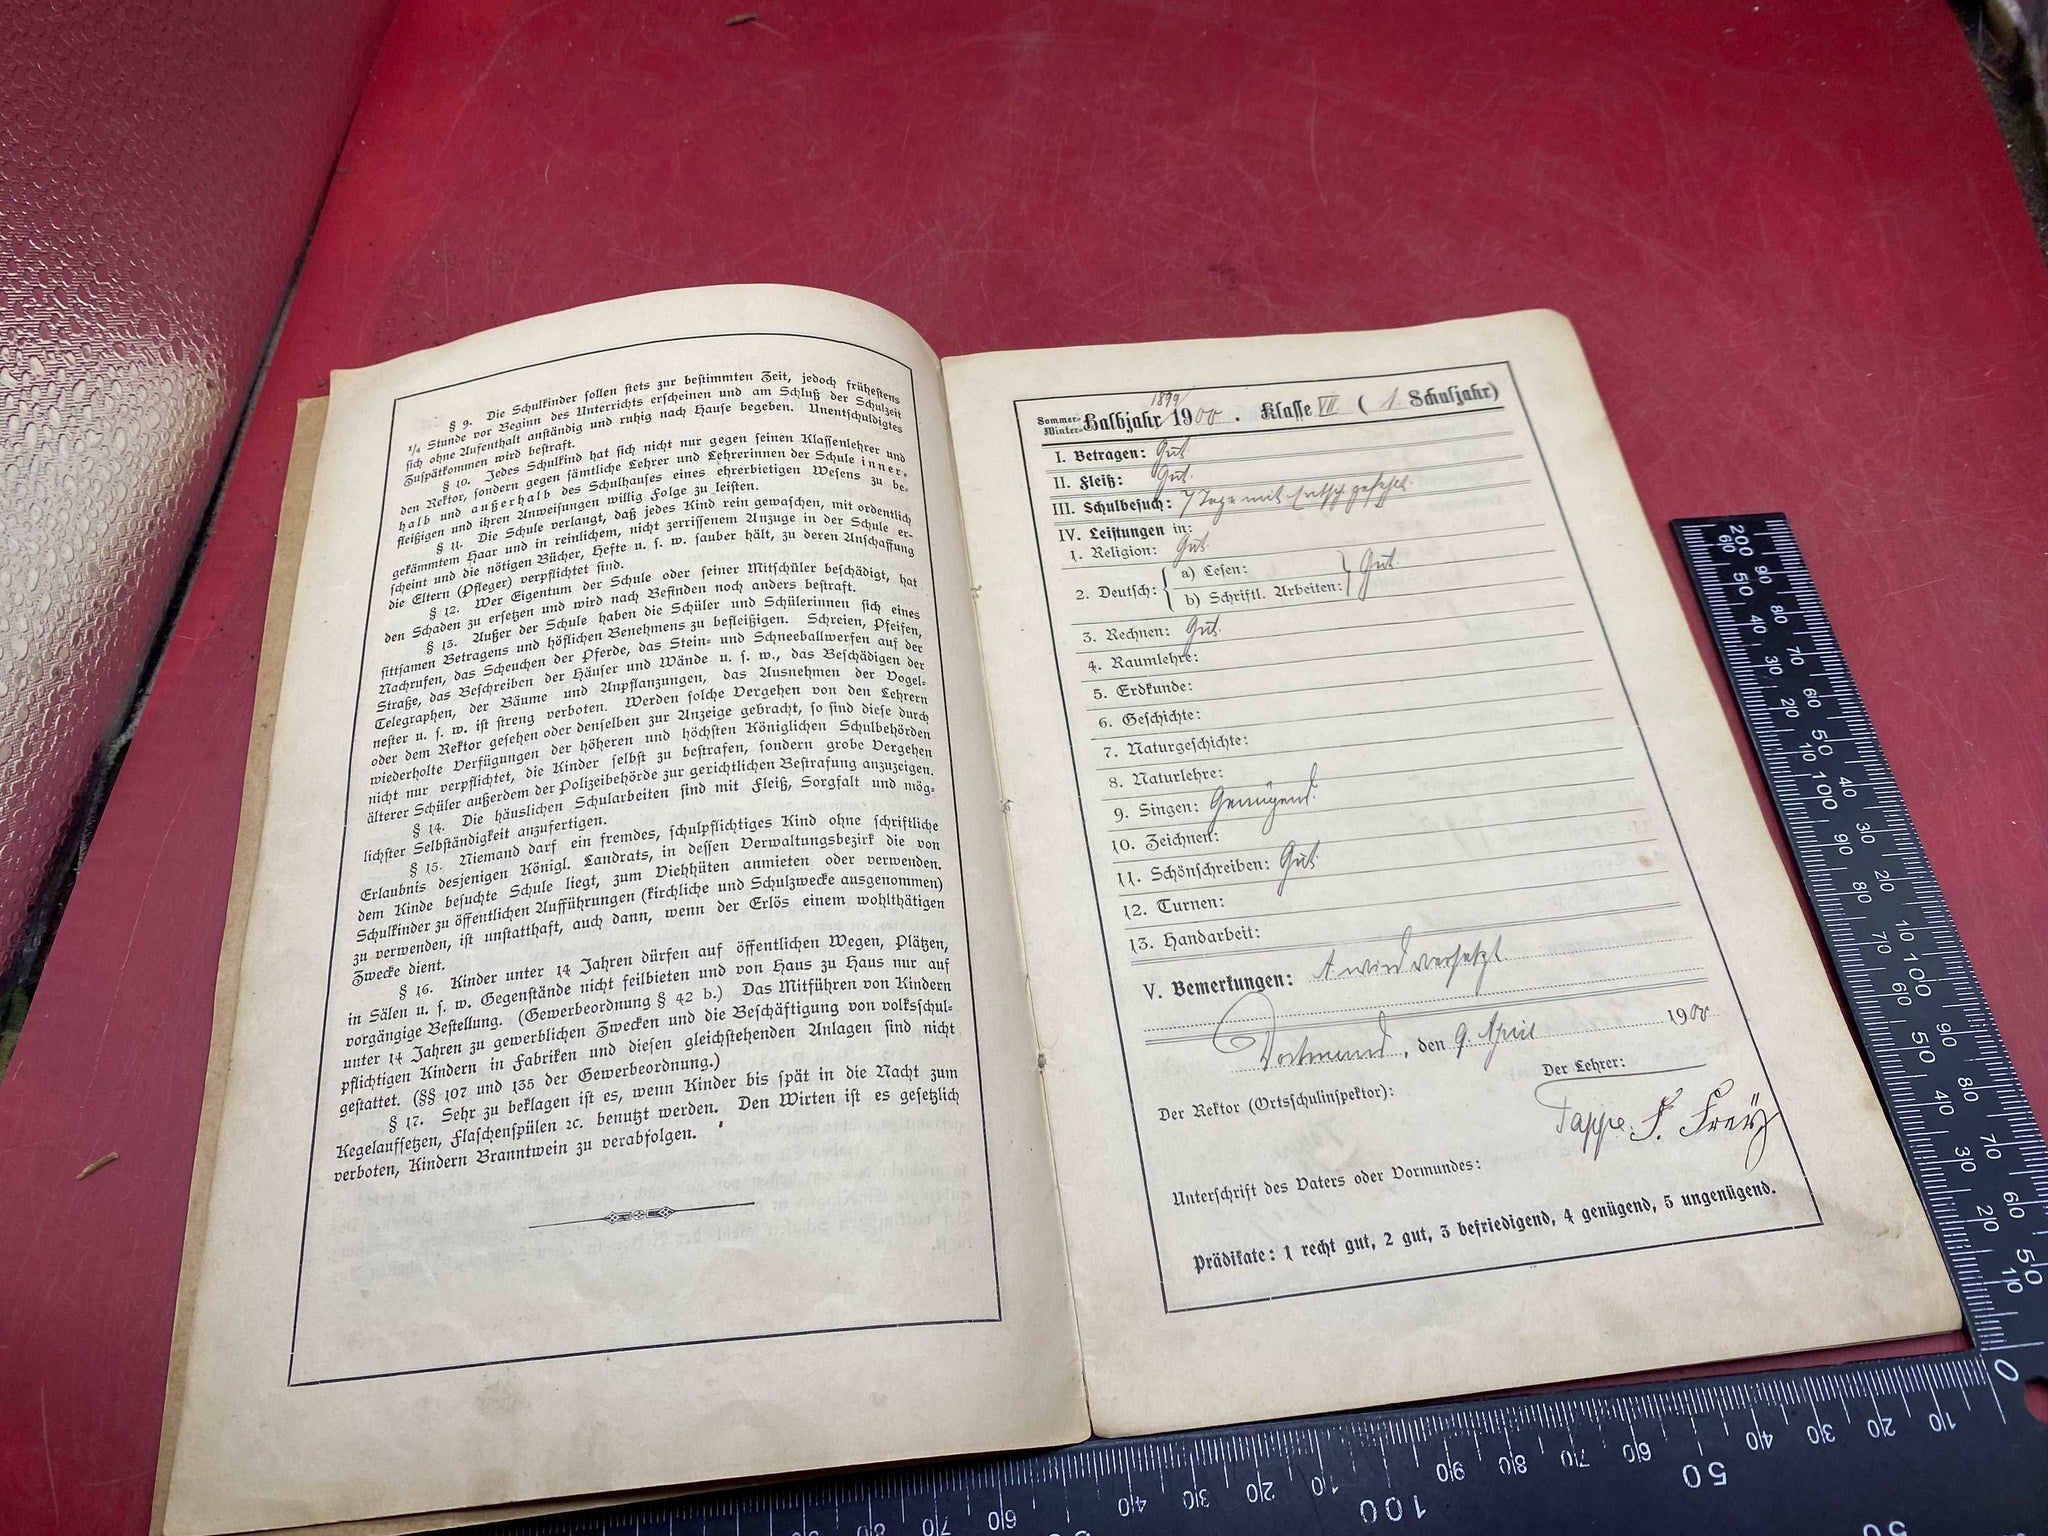 § 9. Die Schulkinder sollen stets zur bestimmten Zeit, jedoch frühestens
1/4 Stunde vor Beginn des Unterrichts erscheinen und am Schluß der Schulzeit
sich ohne Aufenthalt anständig und ruhig nach Hause begeben. Unentschuldigtes
Zuspätkommen wird bestraft.
§ 10. Jedes Schulkind hat sich nicht nur gegen seinen Klassenlehrer und
den Rektor, sondern gegen sämtliche Lehrer und Lehrerinnen der Schule inner-
halb und außerhalb des Schulhauses eines ehrerbietigen Wesens zu be-
fleißigen und ihren Anweisungen willig Folge zu leisten.
§ 11. Die Schule verlangt, daß jedes Kind rein gewaschen, mit ordentlich
gekämmtem Haar und in reinlichem, nicht zerrissenem Anzuge in der Schule er-
scheint und die nötigen Bücher, Hefte u. s. w. sauber hält, zu deren Anschaffung
die Eltern (Pfleger) verpflichtet sind.
§ 12. Wer Eigentum der Schule oder seiner Mitschüler beschädigt, hat
den Schaden zu ersetzen und wird nach Befinden noch anders bestraft.
§ 13. Außer der Schule haben die Schüler und Schülerinnen sich eines
sittsamen Betragens und höflichen Benehmens zu befleißigen. Schreien, Pfeifen,
Nachrufen, das Scheuchen der Pferde, das Stein- und Schneeballwerfen auf der
Straße, das Beschreiben der Häuser und Wände u. s. w., das Beschädigen der
Telegraphen, der Bäume und Anpflanzungen, das Ausnehmen der Vogel-
nester u. s. w. ist streng verboten. Werden solche Vergehen von den Lehrern
oder dem Rektor gesehen oder denselben zur Anzeige gebracht, so sind diese durch
wiederholte Verfügungen der höheren und höchsten Königlichen Schulbehörden
nicht nur verpflichtet, die Kinder selbst zu bestrafen, sondern grobe Vergehen
älterer Schüler außerdem der Polizeibehörde zur gerichtlichen Bestrafung anzuzeigen.
§ 14. Die häuslichen Schularbeiten sind mit Fleiß, Sorgfalt und mög-
lichster Selbständigkeit anzufertigen.
§ 15. Niemand darf ein fremdes, schulpflichtiges Kind ohne schriftliche
Erlaubnis desjenigen Königl. Landrats, in dessen Verwaltungsbezirk die von
dem Kinde besuchte Schule liegt, zum Viehhüten anmieten oder verwenden.
Schulkinder zu öffentlichen Aufführungen (kirchliche und Schulzwecke ausgenommen)
zu verwenden, ist unstatthaft, auch dann, wenn der Erlös einem wohlthätigen
Zwecke dient.
§ 16. Kinder unter 14 Jahren dürfen auf öffentlichen Wegen, Plätzen,
in Sälen u. s. w. Gegenstände nicht feilbieten und von Haus zu Haus nur auf
vorgängige Bestellung. (Gewerbeordnung § 42 b.) Das Mitführen von Kindern
unter 14 Jahren zu gewerblichen Zwecken und die Beschäftigung von volksschul-
pflichtigen Kindern in Fabriken und diesen gleichstehenden Anlagen sind nicht
gestattet. (§§ 107 und 135 der Gewerbeordnung.)
§ 17. Sehr zu beklagen ist es, wenn Kinder bis spät in die Nacht zum
Kegelaufsetzen, Flaschenspülen 2c. benutzt werden. Den Wirten ist es gesetzlich
verboten, Kindern Branntwein zu verabfolgen.
Sommer-
Winter-Halbjahr 1899/1900. Klasse VII (1. Schuljahr)
I. Betragen: Gut.
II. Fleiß: Gut.
III. Schulbesuch: 7 Tage mit Entsch. gefehlt.
IV. Leistungen in:
1. Religion: Gut.
2. Deutsch: a) Lesen:
b) Schriftl. Arbeiten: Gut.
3. Rechnen: Gut.
4. Raumlehre:
5. Erdkunde:
6. Geschichte:
7. Naturgeschichte:
8. Naturlehre:
9. Singen: Genügend.
10. Zeichnen:
11. Schönschreiben: Gut.
12. Turnen:
13. Handarbeit:
V. Bemerkungen: A. wird versetzt
Dortmund, den 9. April 1900
Der Rektor (Ortsschulinspektor): Der Lehrer:
Tappe. F.
Unterschrift des Vaters oder Vormundes:
Prädikate: 1 recht gut, 2 gut, 3 befriedigend, 4 genügend, 5 ungenügend.